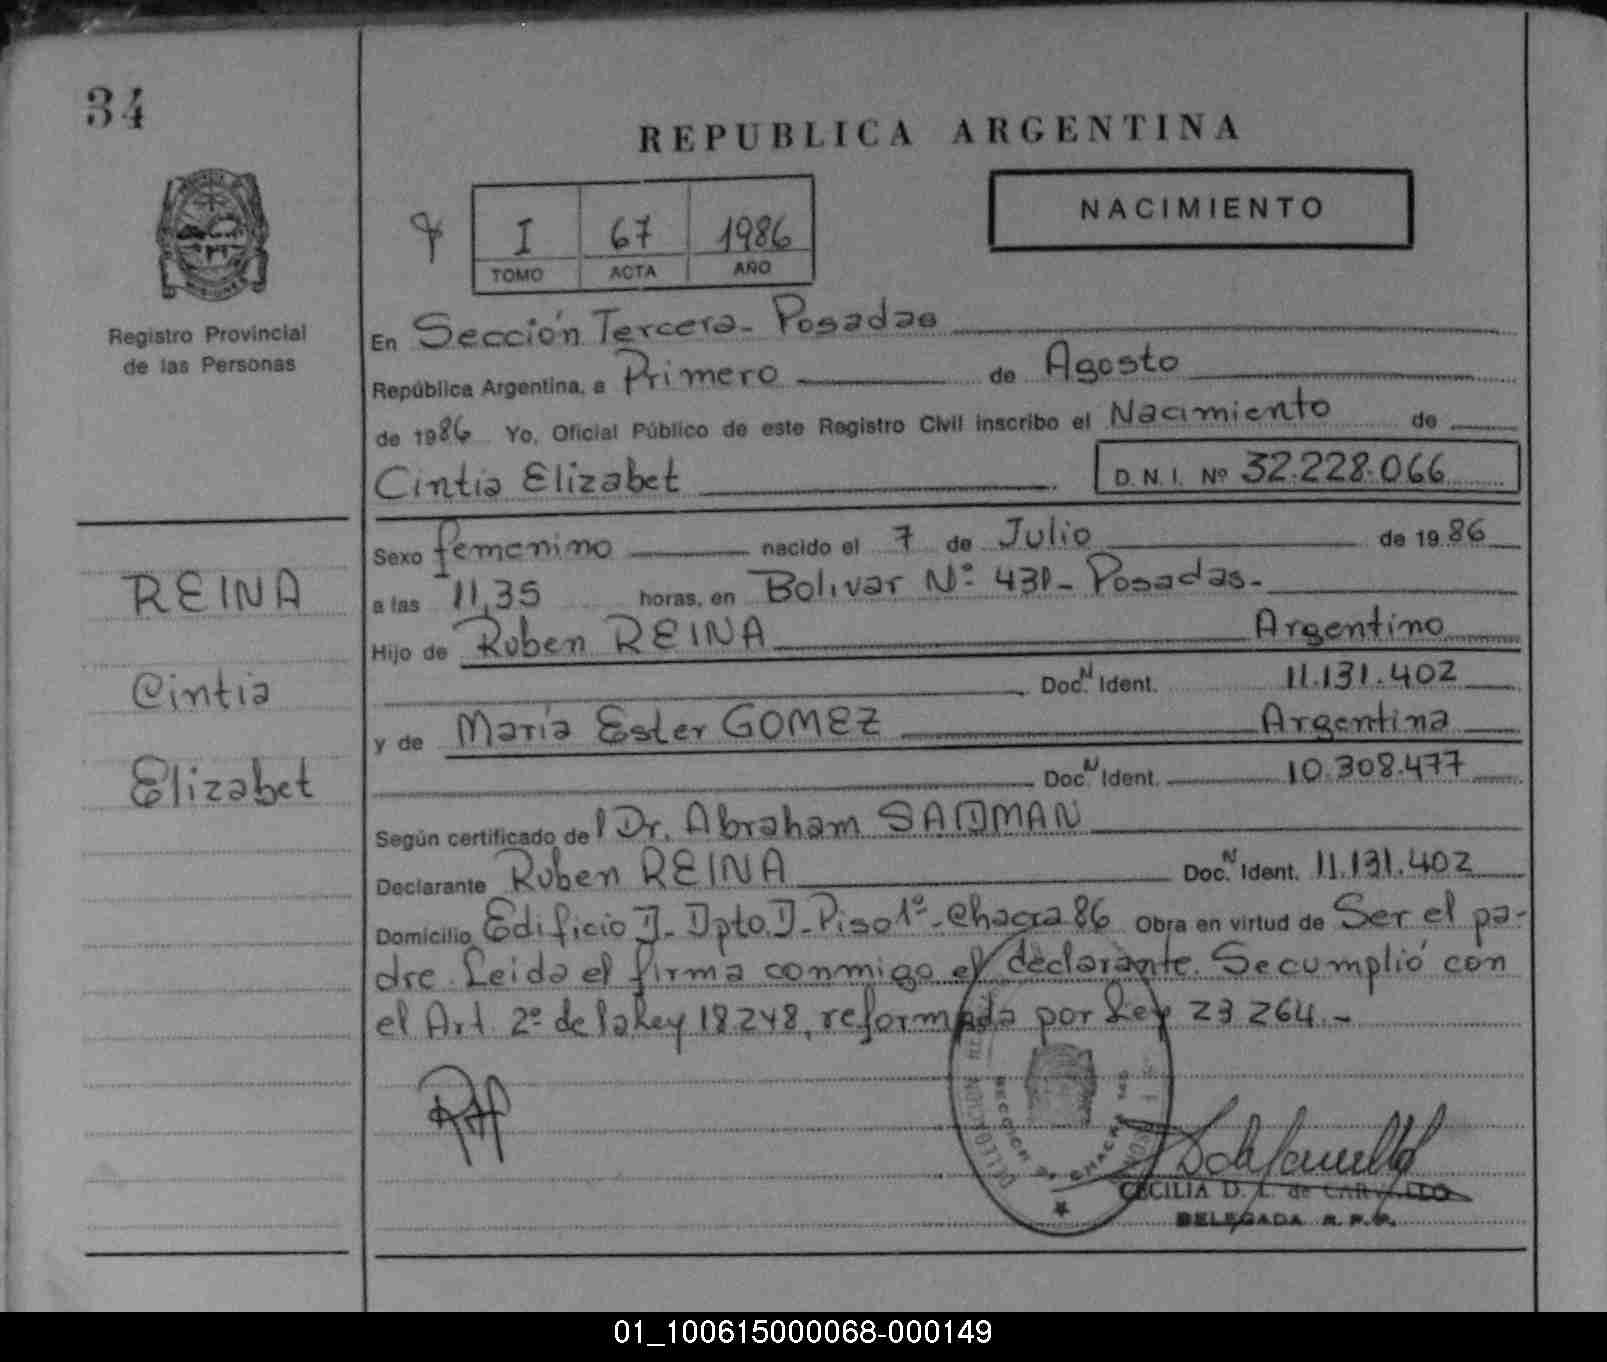 34
REPUBLICA ARGENTINA
NACIMIENTO
I 67 1986
TOMO ACTA AÑO
Registro Provincial
de las Personas
En Sección Tercera - Posadas
República Argentina, a Primero de Agosto
de 1986 Yo, Oficial Público de este Registro Civil inscribo el Nacimiento de
Cintia Elizabet D. N. I. Nº 32.228.066
REINA
Cintia
Elizabet
Sexo femenino nacido el 7 de Julio de 1986
a las 11,35 horas, en Bolivar Nº 431 - Posadas.-
Hijo de Ruben REINA Argentino
Doc. N Ident. 11.131.402
y de María Ester GOMEZ Argentina
Doc. N Ident. 10.308.477
Según certificado del Dr. Abraham
Declarante Ruben REINA Doc. N Ident. 11.131.402
Domicilio Edificio D - Dpto. D - Piso 1º - Chacra 86 Obra en virtud de Ser el pa-
dre. Leida el firma conmigo el declarante. Se cumplió con
el Art. 2º de la Ley 18248, reformada por Ley 23264.-
DELEGACION
SECCION 3ª CHACRA
CECILIA D. L. de
DELEGADA R. P. P.
01_100615000068-000149